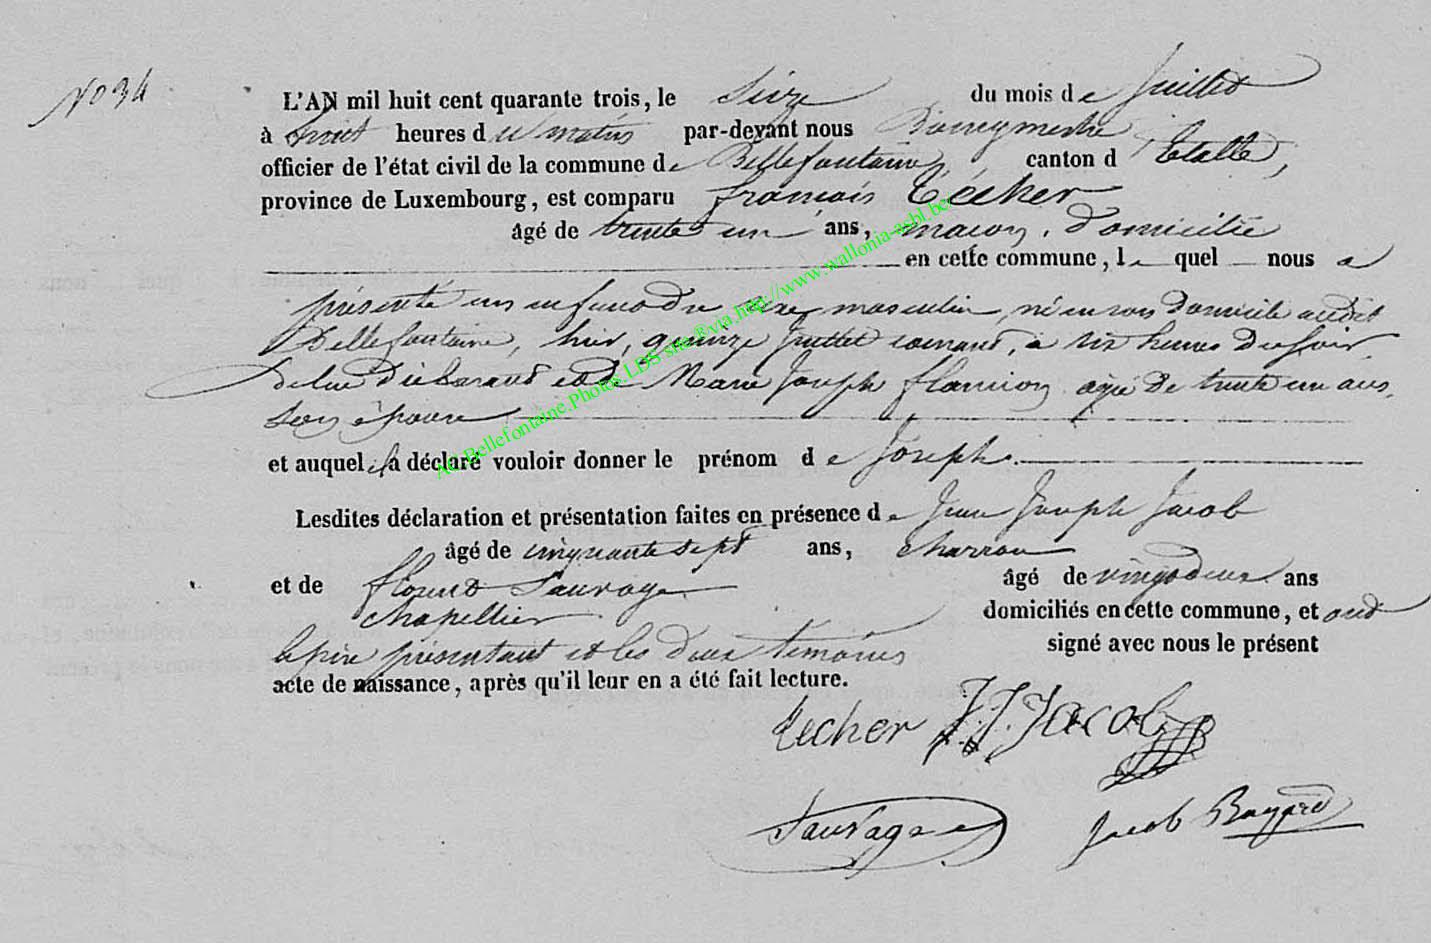 No 34
L'AN mil huit cent quarante trois, le Seize du mois de Juillet
à huit heures du matin par-devant nous Bourgmestre
officier de l'état civil de la commune de Bellefontaine, canton d'Etalle,
province de Luxembourg, est comparu françois Técher
âgé de trente un ans, maçon, domicilié
en cette commune, le quel nous a
présenté un enfant du sexe masculin, né en son domicile audit
Bellefontaine, hier, quinze Juillet courant, à six heures du soir
de lui déclarant et de Marie Joseph flamion agée de trente un ans,
son épouse
et auquel il a déclaré vouloir donner le prénom de Joseph.
Lesdites déclaration et présentation faites en présence de Jean Joseph Jacob
âgé de cinquante sept ans, charron
et de florent Sauvage âgé de vingt deux ans
chapellier domiciliés en cette commune, et ont
le père présentant et les deux témoins signé avec nous le présent
acte de naissance, après qu'il leur en a été fait lecture.
Techer J.J. Jacob
Sauvage Jacob Bayard
AC.Bellefontaine.Photos.LDS site®via.http://www.wallonia-asbl.be